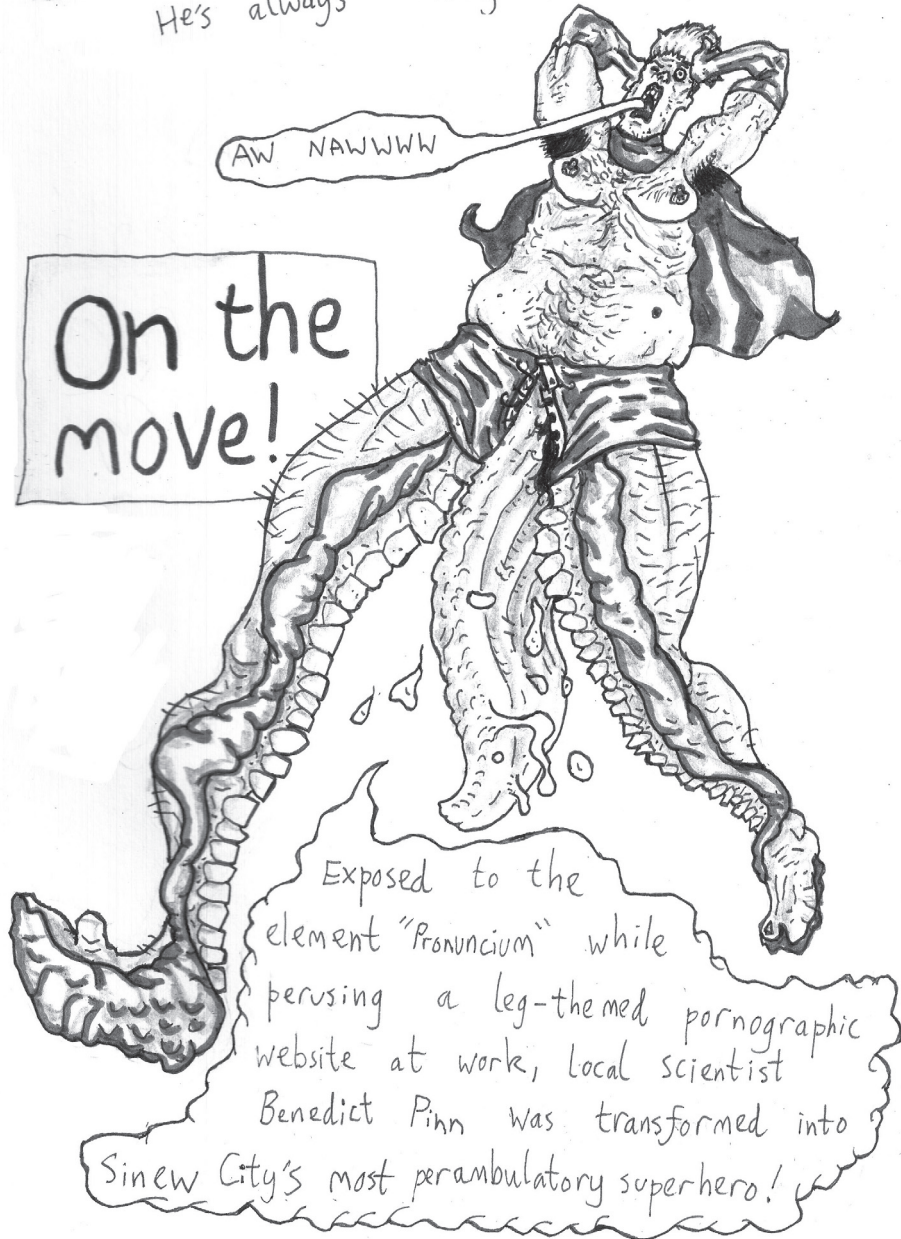 He's always
AW NAWWWW
On the
move!
Exposed to the
element "Pronuncium" while
perusing a leg-themed pornographic
website at work, local scientist
Benedict Pinn was transformed into
Sinew City's most perambulatory superhero!